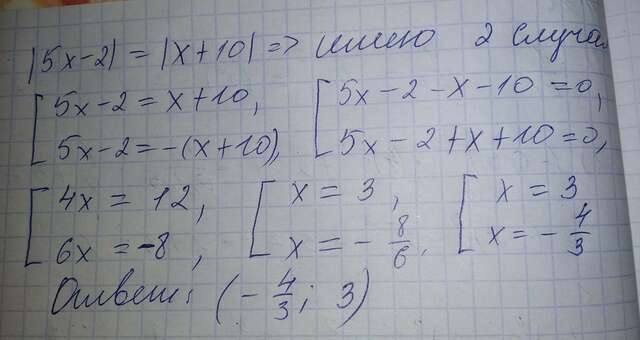 |5x-2| = |x+10| => имею 2 случая
[ 5x-2 = x+10, [ 5x-2-x-10=0,
5x-2=-(x+10), 5x-2+x+10=0,
[ 4x = 12, [ x = 3, [ x = 3
6x = -8, x = -8/6. x = -4/3
Ответ: (-4/3; 3)